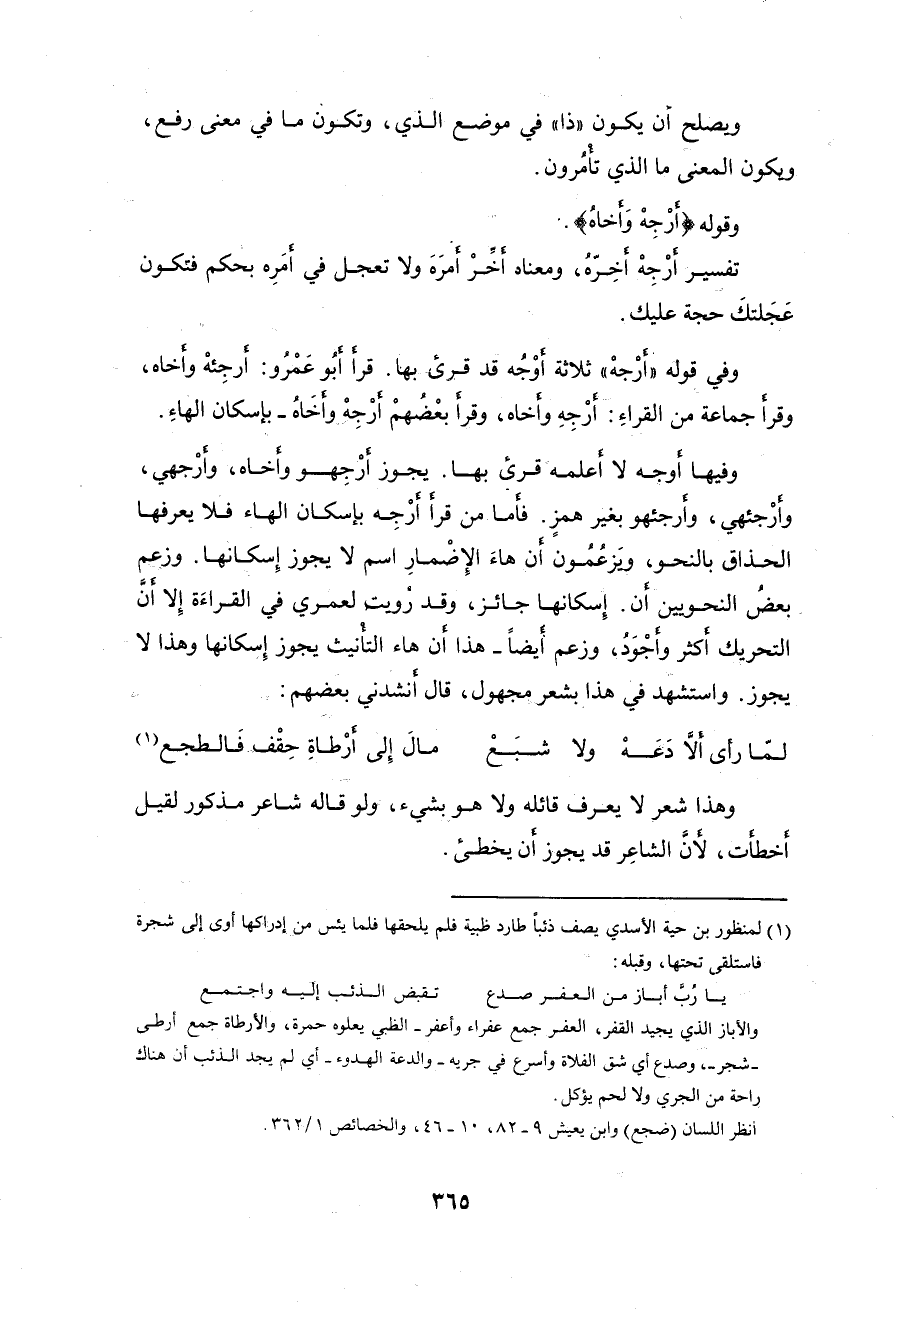 ويصلح أن يكون «ذا» في موضع الذي، وتكون ما في معنى رفع،
ويكون المعنى ما الذي تأْمُرون.
وقوله ﴿أَرْجِهْ وَأَخاهُ﴾.
تفسير أَرْجِهْ أَخِرّهُ، ومعناه أَخِّرْ أَمرَهَ ولا تعجل في أَمَرِه بحكم فتكون
عَجَلتكَ حجة عليك.
وفي قوله «أَرْجهْ» ثلاثة أَوْجُه قد قرئ بها. قرأَ أَبُو عَمْرُو: أَرجِئهْ وأَخاه،
وقرأَ جماعة من القراءِ: أَرْجِهِ وأَخاه، وقرأَ بعْضُهمْ أَرْجِهْ وأَخَاهُ ـ بإسكان الهاءِ.
وفيها أَوجه لا أَعلمه قرئَ بها. يجوز أَرْجهو وأَخاه، وأَرْجهي،
وأَرْجئهي، وأَرجئهو بغير همزٍ. فأَما من قرأَ أَرْجِه بإسكان الهاء فلا يعرفها
الحذاق بالنحو، ويَزعُمُون أَن هاءَ الإِضْمارِ اسم لا يجوز إِسكانها. وزعم
بعضُ النحويين أَن. إِسكانها جائز، وقد رُويت لعمري في القراءَة إِلا أَنَّ
التحريك أَكثر وأَجْوَدُ، وزعم أَيضاً ـ هذا أَن هاء التأْنيث يجوز إِسكانها وهذا لا
يجوز. واستشهد في هذا بشعر مجهول، قال أَنشدني بعضهم:
لمّا رأى أَلاَّ دَعَهْ ولا شبَعْ مالَ إِلى أَرْطاةِ حِقْف فَالطجع(١)
وهذا شعر لا يعرف قائله ولا هو بشيء، ولو قاله شاعر مذكور لقيل
أَخطأَت، لأَنَّ الشاعِر قد يجوز أَن يخطئ.
(١) لمنظور بن حية الأسدي يصف ذئباً طارد ظبية فلم يلحقها فلما يئس من إدراكها أوى إلى شجرة
فاستلقى تحتها، وقبله:
يا رُبَّ أباز من العفر صدع تقبض الذئب إليه واجتمع
والأباز الذي يجيد القفر، العفر جمع عفراء وأعفر ـ الظبي يعلوه حمرة، والأرطاة جمع أرطى
ـ شجر ـ، وصدع أي شق الفلاة وأسرع في جريه ـ والدعة الهدوء ـ أي لم يجد الذئب أن هناك
راحة من الجري ولا لحم يؤكل.
أنظر اللسان (ضجع) وابن يعيش ٩ ـ ٨٢، ١٠ ـ ٤٦، والخصائص ١/ ٣٦٢.
٣٦٥